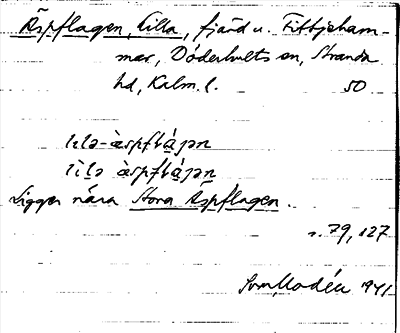 Äspflagen, Lilla, fjärd u. Fittjeham-
mar, Döderhults sn, Stranda
hd, Kalm. l. 50
lɩlə-àspflájən
lìlə àspflájən
Ligger nära Stora Äspflagen.
s. 79, 127
Sven Modéer 1941